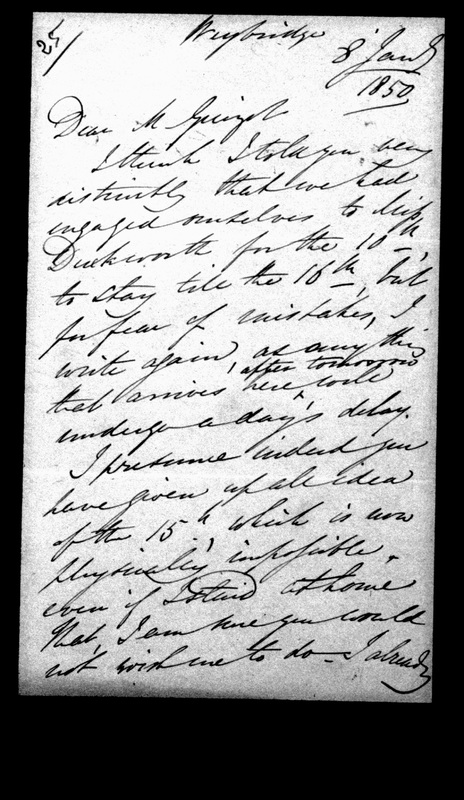 Weybridge
8 Jany
1850
Dear M Guizot
I think I told you very
distinctly that we had
engaged ourselves to Miss
Duckworth for the 10th,
to stay till the 16th, but
for fear of mistakes, I
write again, as anything
that arrives here after tomorrow will
undergo a day's delay.
I presume indeed you
have given up all idea
of the 15th, which is now
physically impossible.
even if I staid at home
that, I am sure you would
not wish me to do - I already